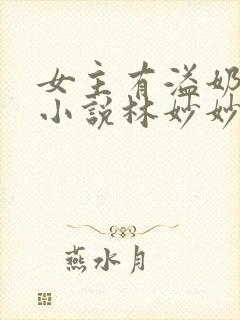 女主有溢奶
小説林妙妙
燕水月